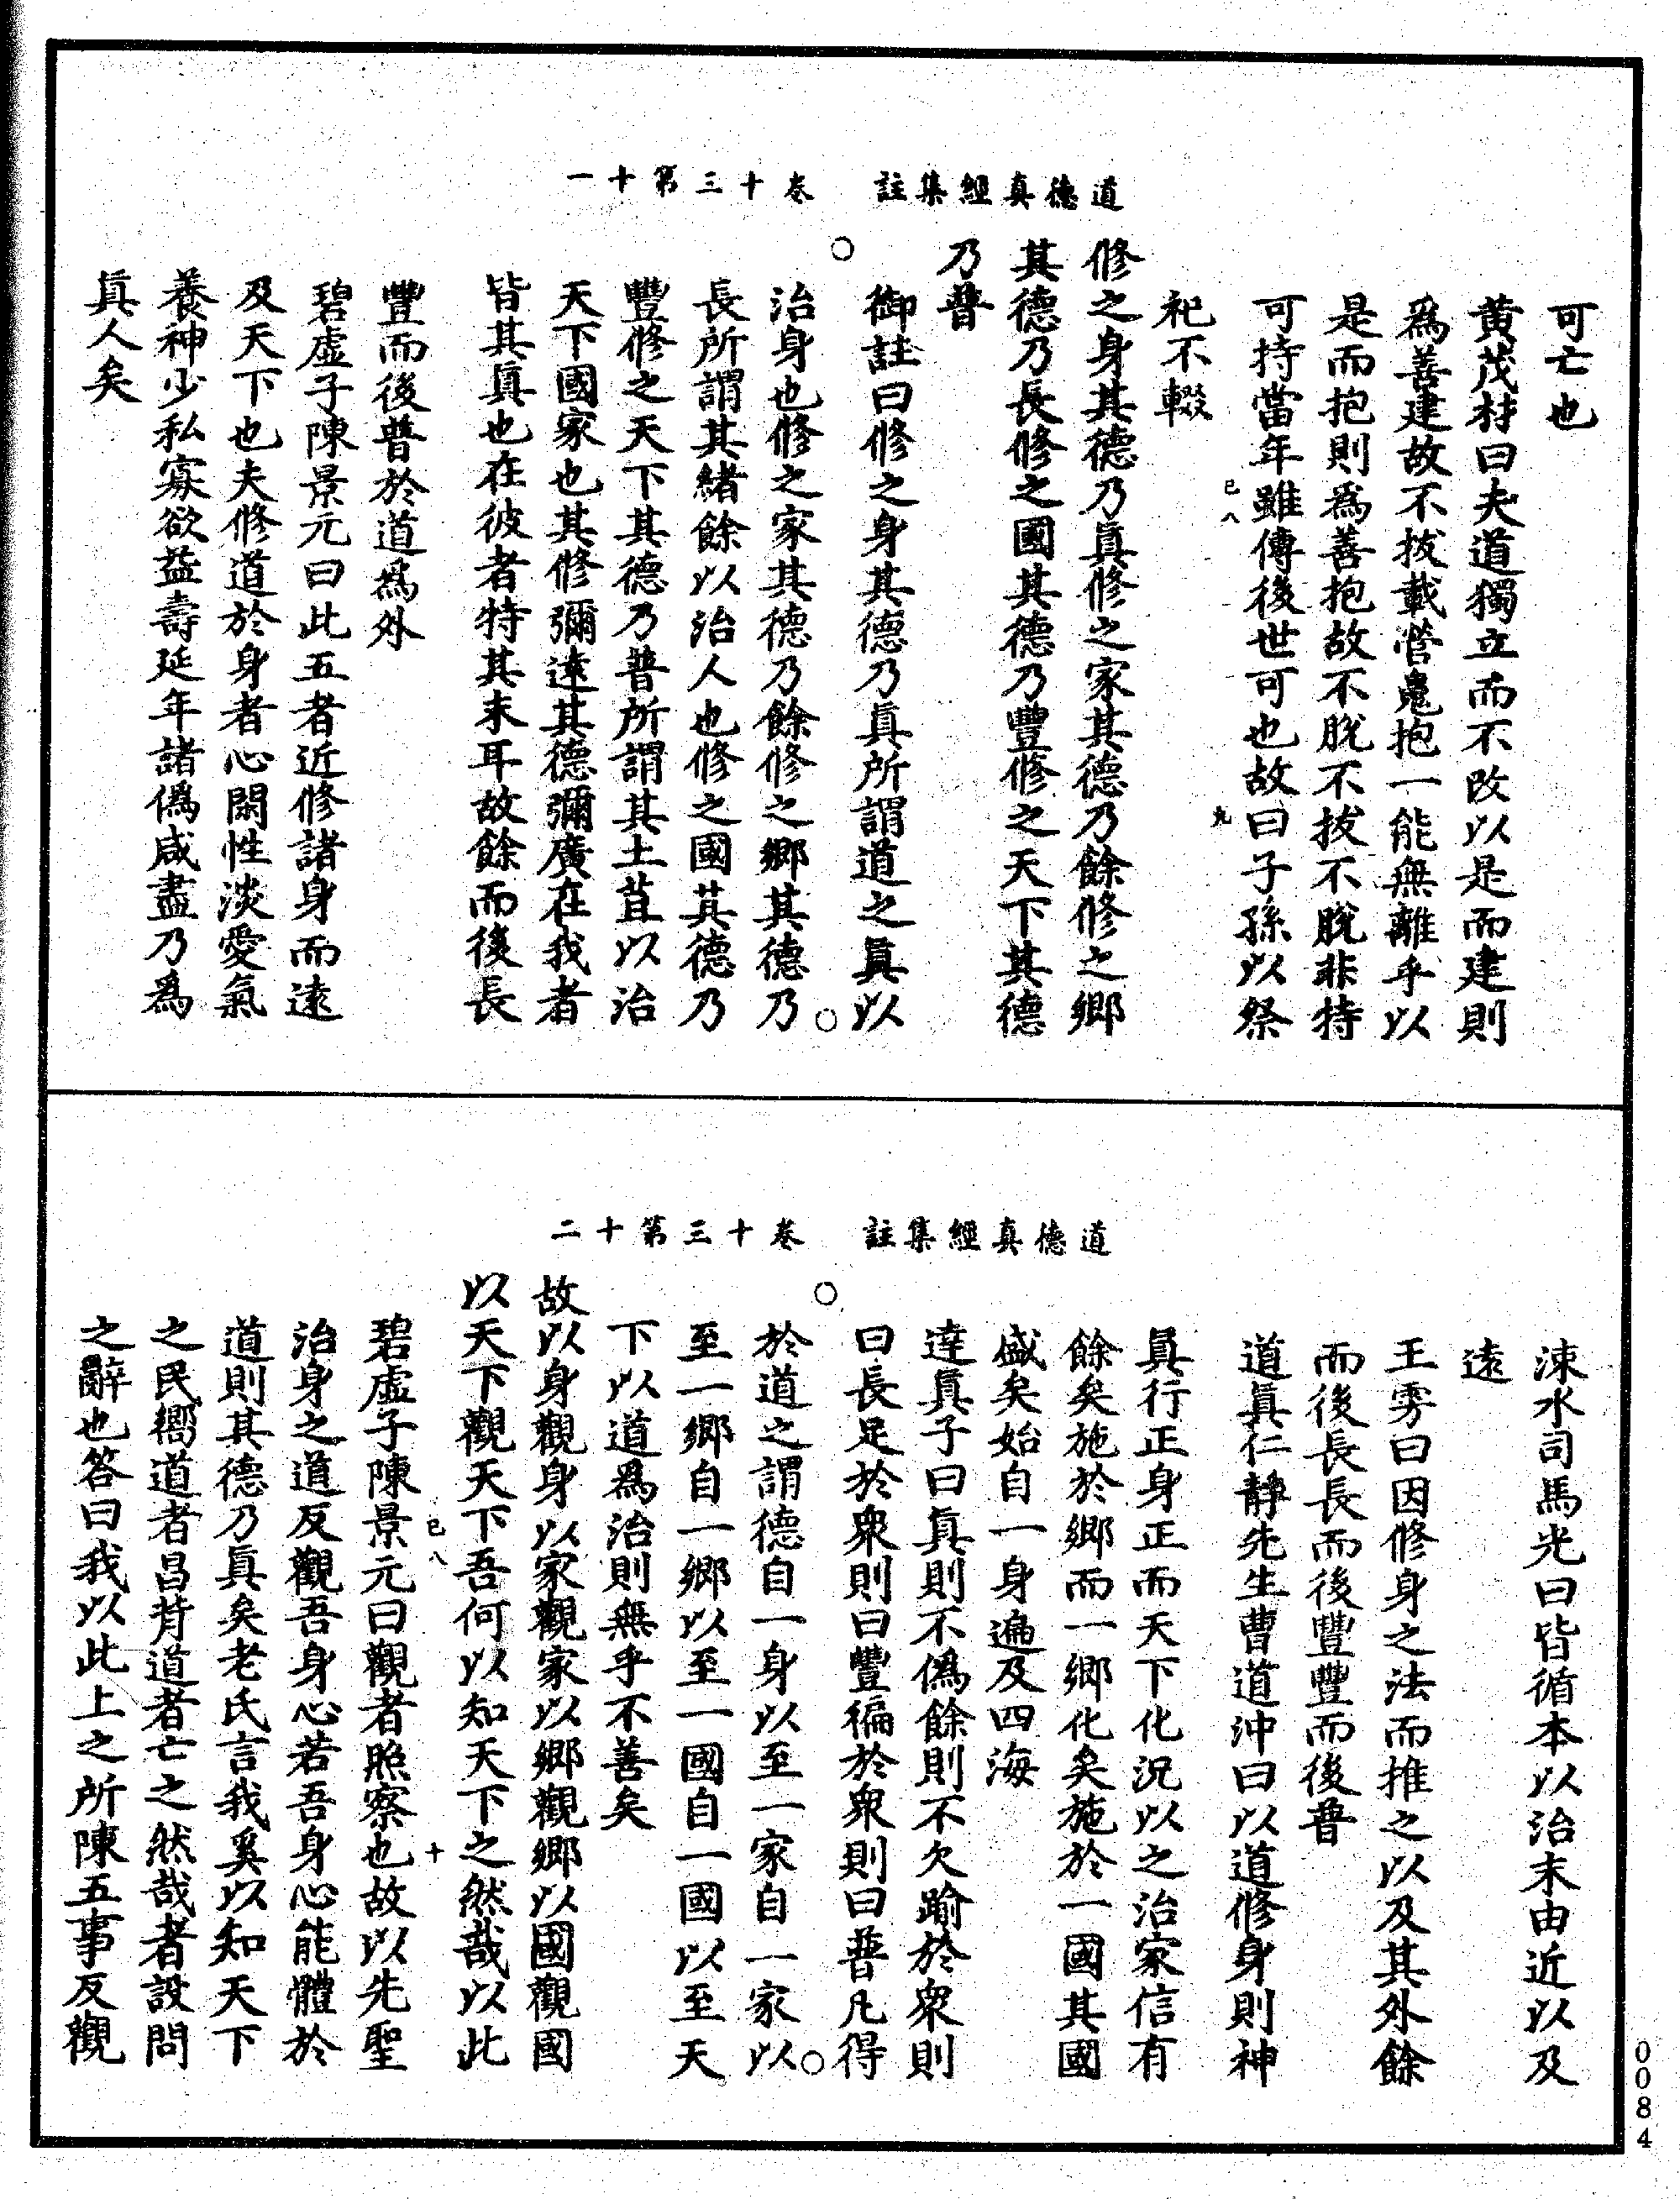 道德真經集註　卷十三第十一
可亡也
黄茂材曰夫道獨立而不改以是而建則
爲善建故不拔載營䰟抱一能無離乎以
是而抱則爲善抱故不脫不拔不脫非特
可持當年雖傳後世可也故曰子孫以祭
祀不輟
修之身其德乃眞修之家其德乃餘修之鄉
其德乃長修之國其德乃豐修之天下其德
乃普
御註曰修之身其德乃眞所謂道之眞以
治身也修之家其德乃餘修之鄉其德乃
長所謂其緒餘以治人也修之國其德乃
豐修之天下其德乃普所謂其土苴以治
天下國家也其修彌遠其德彌廣在我者
皆其眞也在彼者特其末耳故餘而後長
豐而後普於道爲外
碧虛子陳景元曰此五者近修諸身而遠
及天下也夫修道於身者心閑性淡愛氣
養神少私寡欲益壽延年諸僞咸盡乃爲
眞人矣
已八
九
道德真經集註　卷十三第十二
涑水司馬光曰皆循本以治末由近以及
遠
王雱曰因修身之法而推之以及其外餘
而後長長而後豐豐而後普
道眞仁靜先生曹道沖曰以道修身則神
眞行正身正而天下化況以之治家信有
餘矣施於鄉而一鄉化矣施於一國其國
盛矣始自一身遍及四海
達眞子曰眞則不僞餘則不欠踰於衆則
曰長足於衆則曰豐徧於衆則曰普凡得
於道之謂德自一身以至一家自一家以
至一鄉自一鄉以至一國自一國以至天
下以道爲治則無乎不善矣
故以身觀身以家觀家以鄉觀鄉以國觀國
以天下觀天下吾何以知天下之然哉以此
碧虛子陳景元曰觀者照察也故以先聖
治身之道反觀吾身心若吾身心能體於
道則其德乃眞矣老氏言我奚以知天下
之民嚮道者昌背道者亡之然哉者設問
之辭也答曰我以此上之所陳五事反觀
已八
十
0084